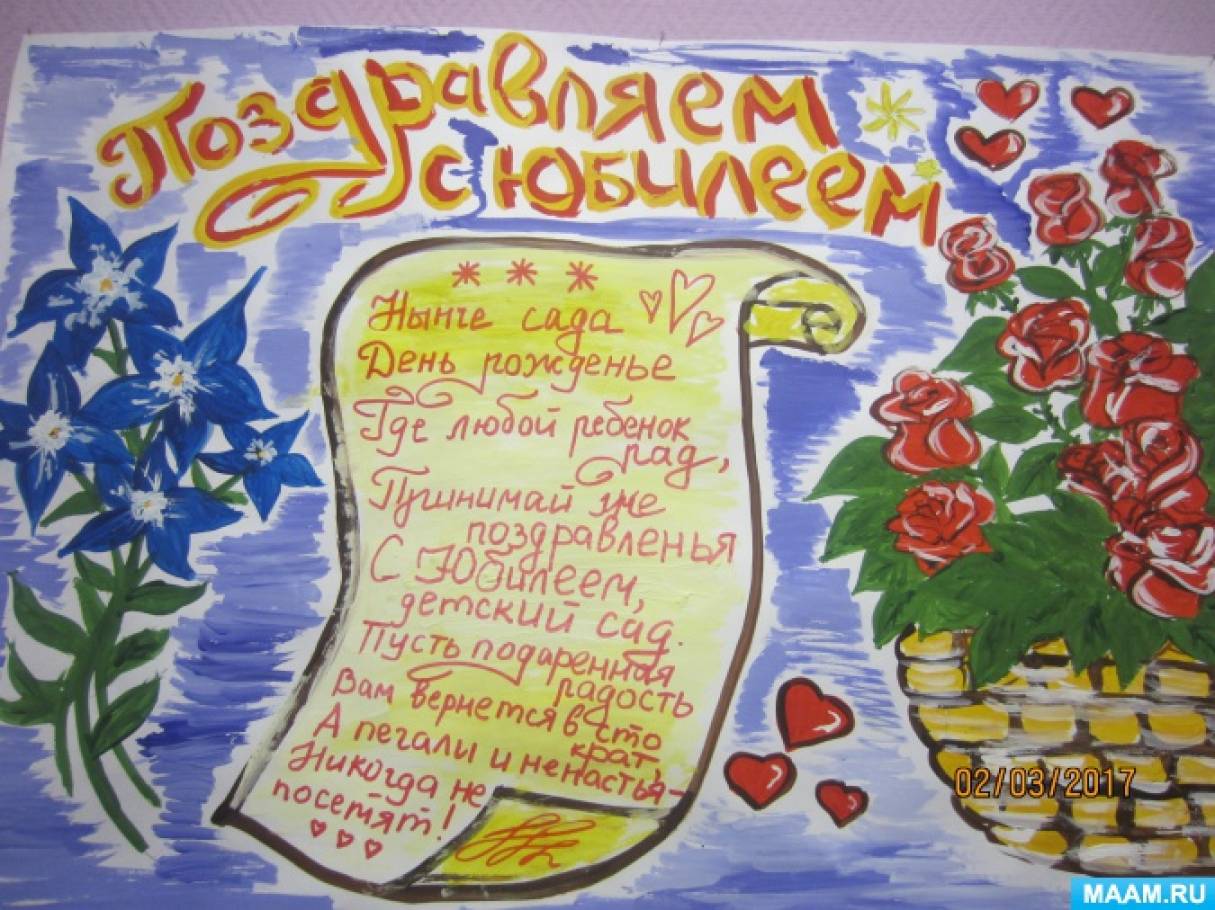 Поздравляем
с юбилеем
Нынче сада
День рожденье
Где любой ребенок
рад,
Принимай уже
поздравленья
С Юбилеем,
детский сад.
Пусть подаренная
радость
Вам вернется в сто
крат,
А печали и ненастья-
Никогда не
посетят!
02/03/2017
MAAM.RU